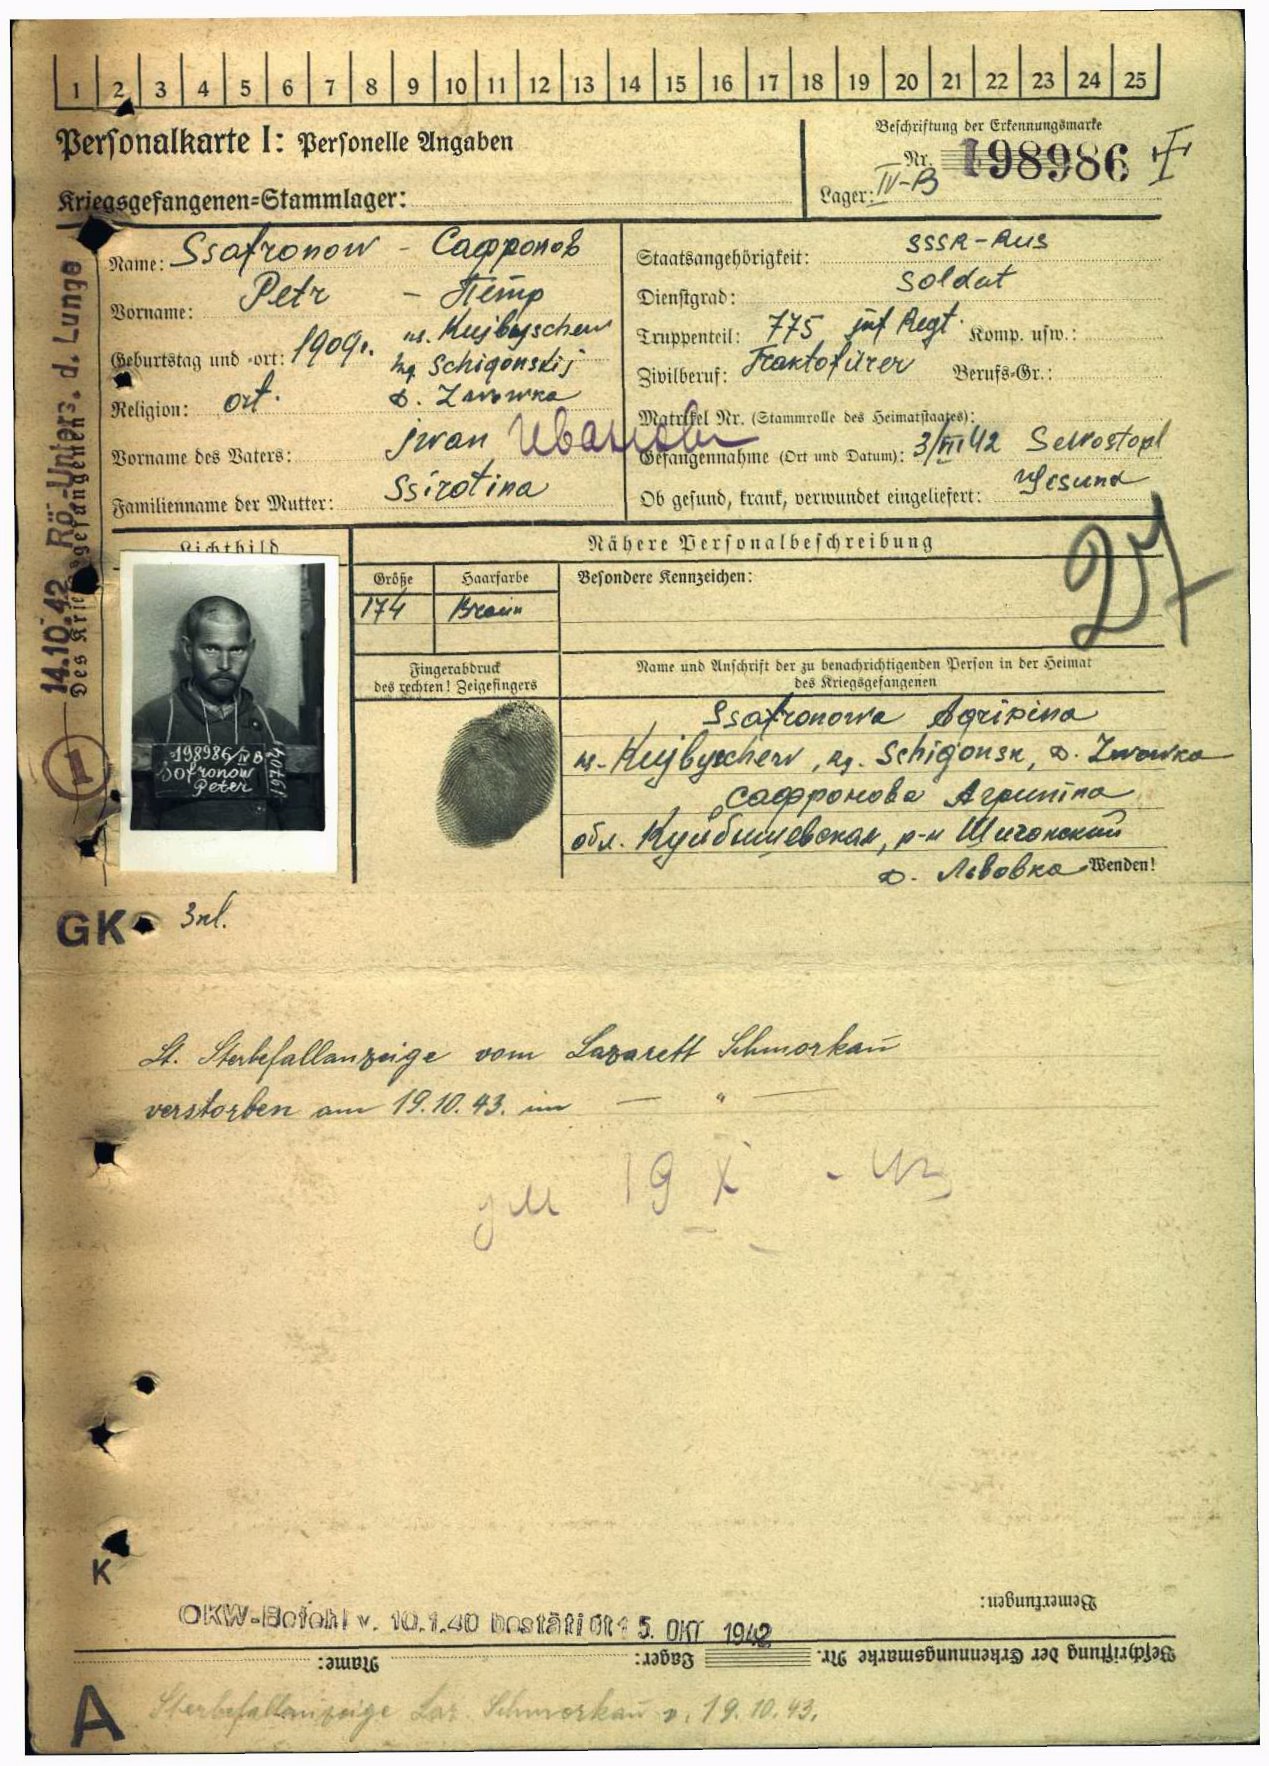 1 2 3 4 5 6 7 8 9 10 11 12 13 14 15 16 17 18 19 20 21 22 23 24 25
Personalkarte I: Personelle Angaben
Kriegsgefangenen-Stammlager:
Beschriftung der Erkennungsmarke
Nr. 198986
Lager: IV-B
Name: Ssafronow - Сафронов
Vorname: Petr - Петр
Geburtstag und -ort: 1909.
Kujbyschew
Schigonskij
Religion: ort.
д. Lwowka
Vorname des Vaters: Iwan Иванович
Familienname der Mutter: Ssirotina
Staatsangehörigkeit: SSSR-Rus
Dienstgrad: Soldat
Truppenteil: 775 inf Regt. Komp. usw.:
Zivilberuf: Traktofürer Berufs-Gr.:
Matrikel Nr. (Stammrolle des Heimatstaates):
Gefangennahme (Ort und Datum): 3/VII 42 Sewostopl
Ob gesund, krank, verwundet eingeliefert: Gesund
14.10.42 Rö.-Unters. d. Lunge
Des Kriegsgefangenen
1
Lichtbild
Nähere Personalbeschreibung
Größe Haarfarbe Besondere Kennzeichen:
174 Braun
27
Fingerabdruck
des rechten! Zeigefingers
Name und Anschrift der zu benachrichtigenden Person in der Heimat
des Kriegsgefangenen
Ssafronowa Agripina
Kujbyschew, Schigonsk, д. Lwowka
Сафронова Агрипина
обл. Куйбышевская, р-н Шигонский
д. Львовка Wenden!
198986/IV B
Sofronow
Peter
GK
St. Sterbefallanzeige vom Lazarett Schmorkau
verstorben am 19.10.43. im — " —
ум 19 X - 43
K
Bemerkungen:
OKW-Befehl v. 10.1.40 bestätigt 15. OKT 1942
Beschriftung der Erkennungsmarke Nr. Lager: Name:
A
Sterbefallanzeige Laz. Schmorkau v. 19.10.43.